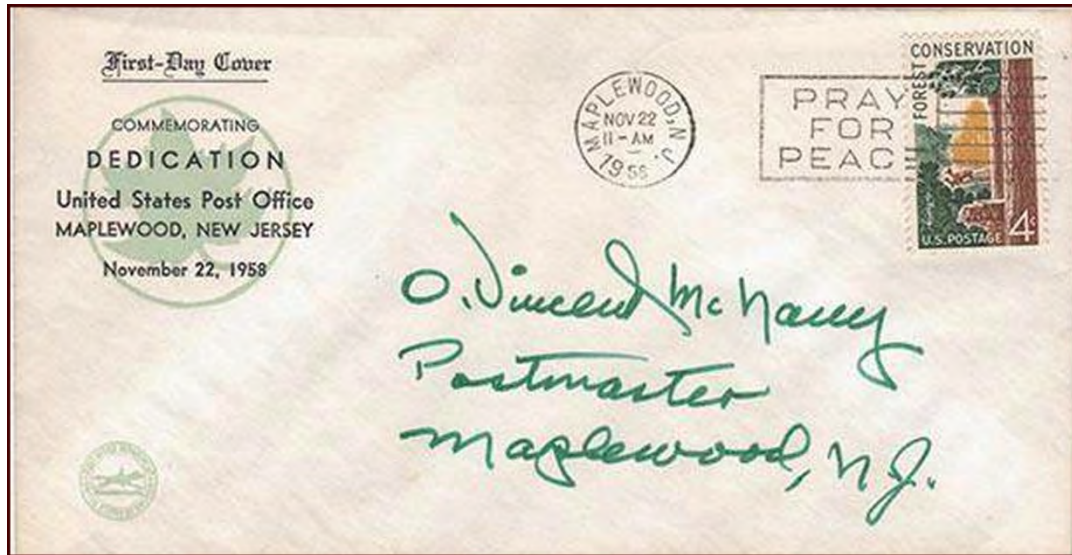 First-Day Cover
COMMEMORATING
DEDICATION
United States Post Office
MAPLEWOOD, NEW JERSEY
November 22, 1958
MAPLEWOOD, N.J.
NOV 22
11-AM
1958
PRAY
FOR
PEAC
FOREST CONSERVATION
U.S. POSTAGE 4¢
O. Vincent McNany
Postmaster
Maplewood, N.J.